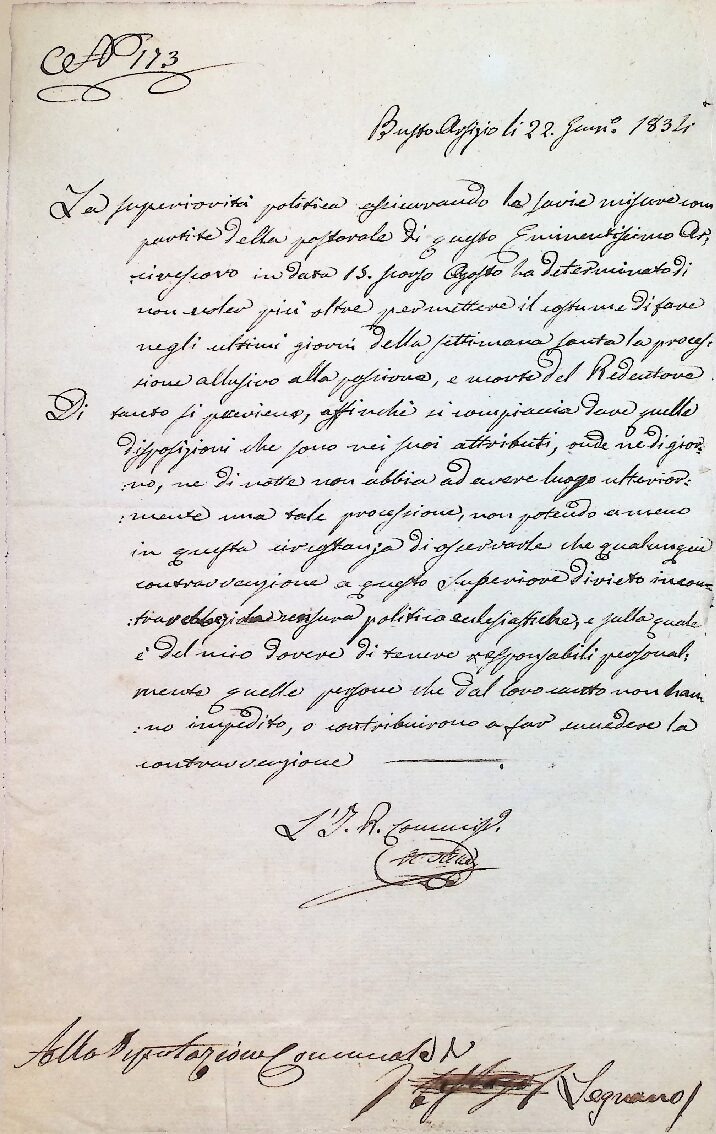 N° 173
Busto Arsizio li 22. Genn.° 1834
La superiorità politica assicurando le savie misure com
partite della pastorale di questo Eminentissimo Ar,
:civescovo in data 15. scorso Agosto ha determinato di
non voler più oltre permettere il costume di fare
negli ultimi giorni della settimana santa la proces:
sione allusiva alla passione, e morte del Redentore.
Di tanto si previene, affinchè si compiaccia dare quelle
disposizioni che sono nei suoi attributi, onde nè di gior:
:no, ne di notte non abbia ad avere luogo ulterior:
:mente una tale processione, non potendo a meno
in questa circostanza di osservarle che qualunque
contravvenzione a questo superiore divieto incon:
:trarebbe censura politica ecclesiastiche, e sulla quale
è del mio dovere di tenere responsabili personal:
mente quelle persone che dal loro canto non han:
:no impedito, o contribuirono a far succedere la
contravvenzione
L'I. R. Commiss.
Alla Deputazione Communale di
Legnano